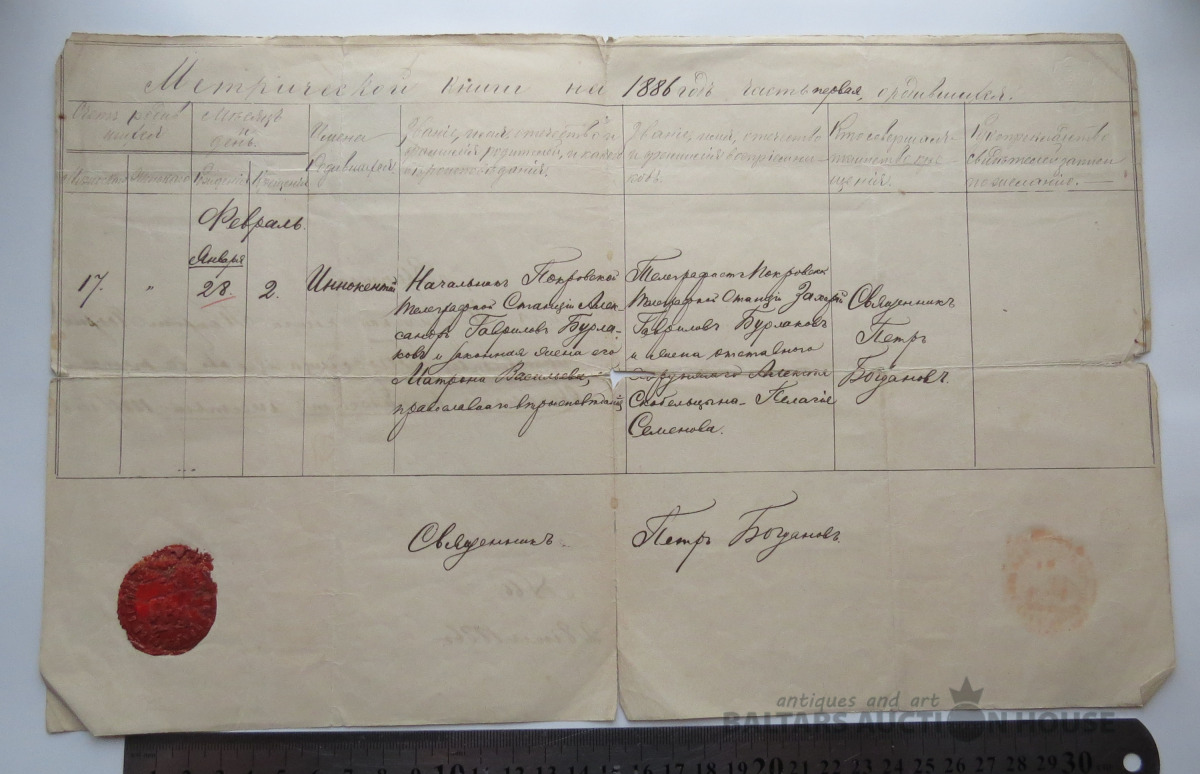 Метрической книги на 1886 годъ часть первая, о родившихся.
Счетъ родив
шихся.
Мѣсяцъ
и
день.
Имена
Родившихся
Званіе, имя, отчество
родителей, и какого
вѣроисповѣданія.
Званіе, имя, отчество
и фамилія воспріемни-
ковъ.
Кто совершалъ
таинство кре
щенія.
Рукоприкладство
свидѣтелей записи
по желанію.
Рожденія
Крещенія
Февраль.
Января
17.
"
28.
2.
Иннокентій
Начальникъ Покровской
Телеграфной Станціи Алек-
сандръ Гавриловъ Бурла-
ковъ и законная жена его
Матрона Васильева,
православнаго вѣроисповѣданія
Телеграфистъ Покровск
Телеграфной Станціи
Гавриловъ Бурлаковъ
и жена отставного
Хорунжаго Алексѣя
Скобельцына Пелагія
Семенова.
Священникъ
Петръ
Богдановъ.
Священникъ Петръ Богдановъ.
antiques and art
BALTARS AUCTION HOUSE
1 2 3 4 5 6 7 8 9 10 11 12 13 14 15 16 17 18 19 20 21 22 23 24 25 26 27 28 29 30